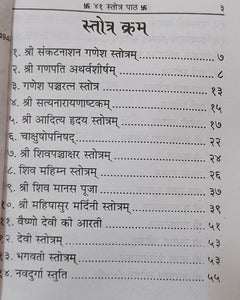 卐 ४१ स्तोत्र पाठ 卐 ३
स्तोत्र क्रम
१. श्री संकटनाशन गणेश स्तोत्रम् ७
२. श्री गणपति अथर्वशीर्षम् ८
३. गणेश पञ्चरत्न स्तोत्र १३
४. श्री सत्यनारायणाष्टकम् १५
५. श्री आदित्य हृदय स्तोत्रम् १७
६. चाक्षुषोपनिषद् २२
७. श्री शिवपञ्चाक्षर स्तोत्रम् २४
८. शिव महिम्न स्तोत्रम् २६
९. श्री शिव मानस पूजा ३७
१०. श्री महिषासुर मर्दिनी स्तोत्रम् ३९
११. वैष्णो देवी की आरती ५१
१२. देवी स्तोत्रम् ५३
१३. भगवती स्तोत्रम् ५३
१४. नवदुर्गा स्तुति ५५